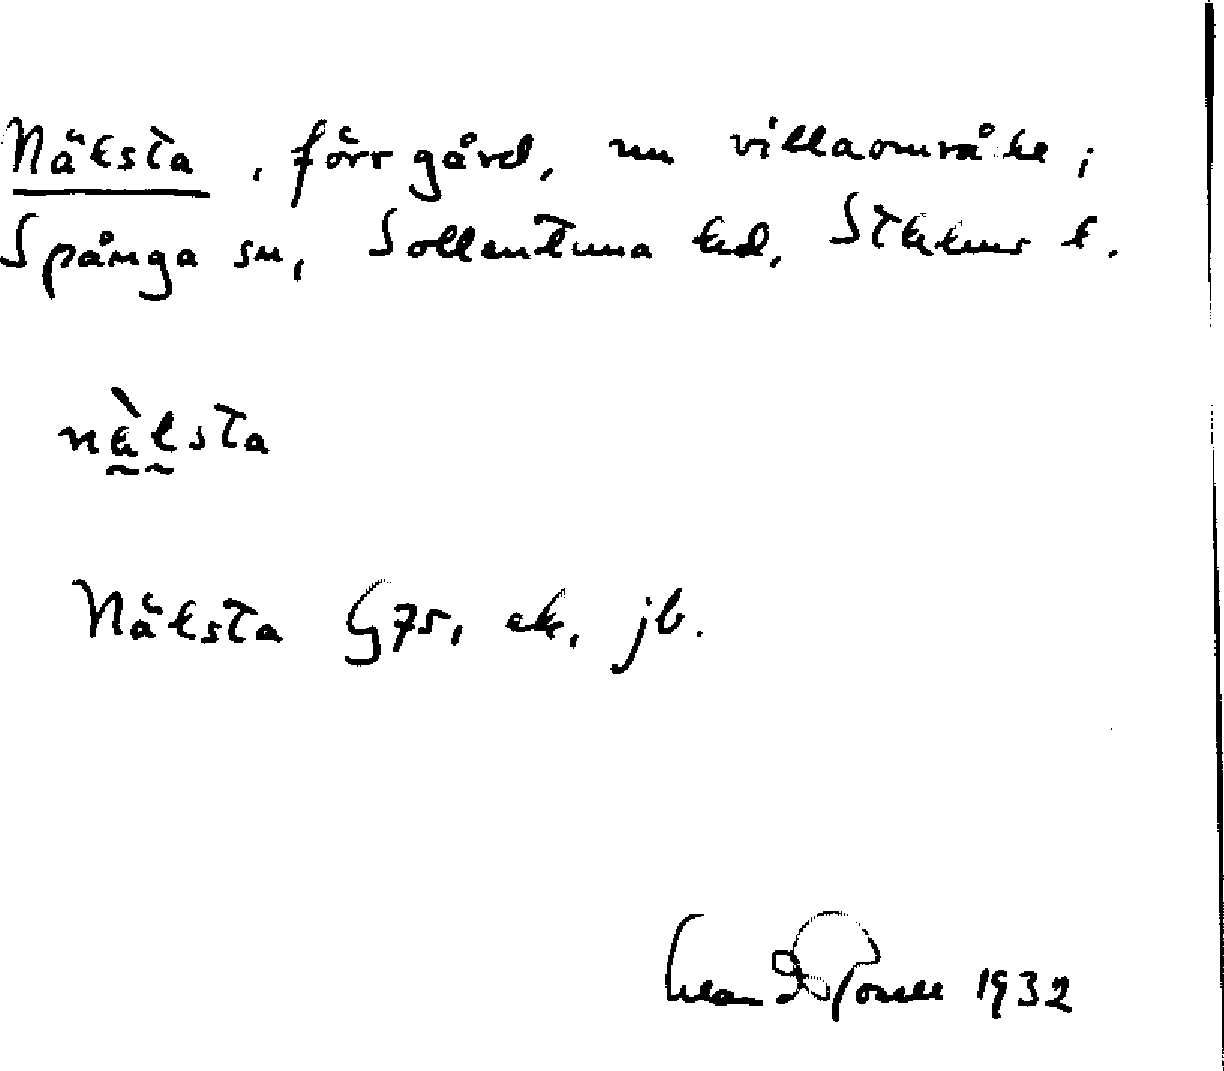 Näksta, förr gård, nu villaområde i
Spånga sn, Sollentuna hd, Sthlms l.
nàksta
Näksta G75, ek, jb.
1932